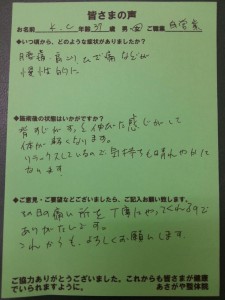 皆さまの声
お名前 K.C 年齢 37 歳 男・女 ご職業 自営業
◆いつ頃から、どのような症状がありましたか?
腰痛・肩こり、ひざ痛などが
慢性的に
◆施術後の状態はいかがですか?
背すじがすっと伸びた感じがして
体が軽くなります。
リラックスしているので気持ちも晴れやかに
なります
◆ご意見・ご要望などございましたら、ご記入お願い致します。
その日の痛い所を丁寧にやってくれるので
ありがたいです。
これからも、よろしくお願いします。
ご協力ありがとうございました。これからも皆さまが健康
でいられますように。 あさがや整体院